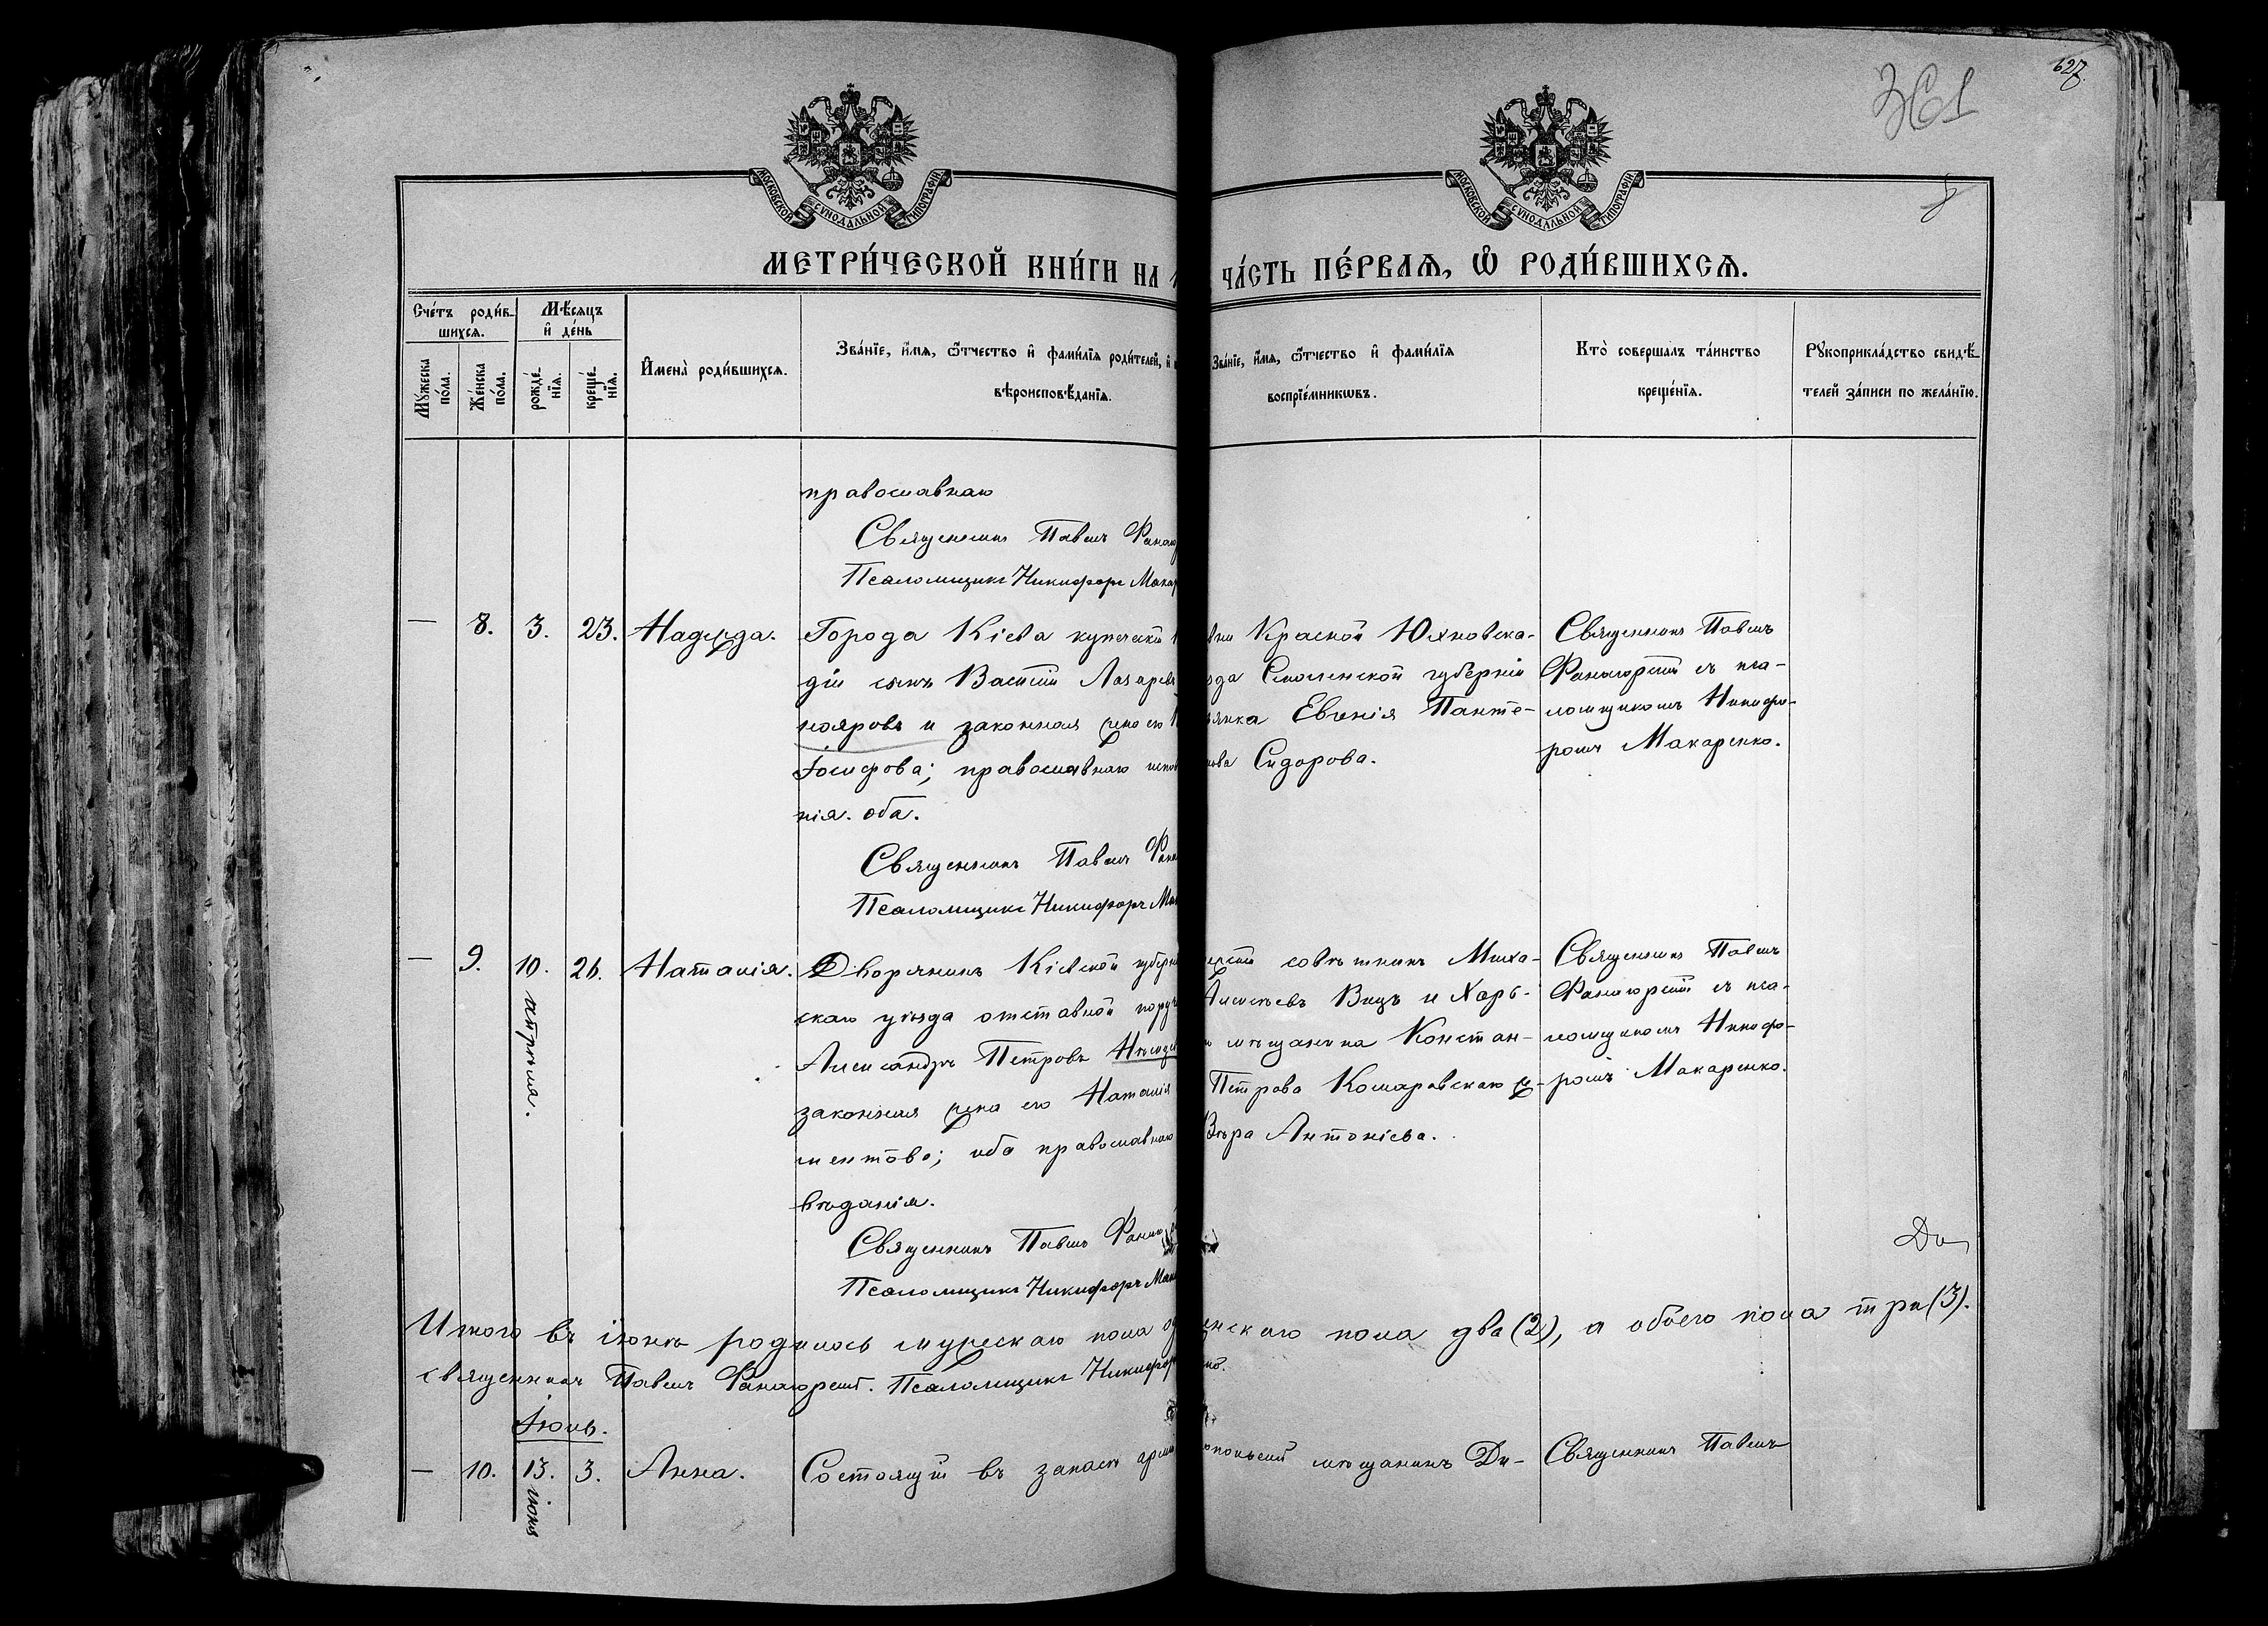 627.
МОСКОВСКОЙ СУНОДАЛЬНОЙ ТИПОГРАФІИ
МОСКОВСКОЙ СУНОДАЛЬНОЙ ТИПОГРАФІИ
МЕТРИ́ЧЕСКОЙ КНИ́ГИ НА
ЧА́СТЬ ПЕ́РВАѦ, Ѽ РОДИ́ВШИХСѦ.
Сче́тъ роди́в-
шихсѧ.
Мѣ́сѧцъ
и҆ де́нь
Мꙋ́жеска по́ла.
Же́нска по́ла.
рожде́-
нїѧ.
креще́-
нїѧ.
И҆мена̀ роди́вшихсѧ.
Зва́нїе, и҆́мѧ, ѻ҆́тчество и҆ фами́лїѧ роди́телей, и҆
вѣроисповѣ́данїѧ.
Зва́нїе, и҆́мѧ, ѻ҆́тчество и҆ фами́лїѧ
воспрїе́мникѡвъ.
Кто̀ соверша́лъ та́инство
креще́нїѧ.
Рꙋкоприкла́дство свидѣ́-
телей за́писи по жела́нїю.
православнаго
Священникъ Павелъ
Псаломщикъ Никифоръ
— 8. 3. 23. Надежда.
Города Кіева купеческій
дій сынъ Василій Лазарев
нояровъ и законная жена его
Іосифова; православнаго
нія. оба.
Священникъ Павелъ
Псаломщикъ Никифоръ
Красной Юхновска-
Смоленской губерніи
Евгенія Панте-
Сидорова.
Священникъ Павелъ
Фанагорскій съ пса-
ломщикомъ Никифо-
ромъ Макаренко.
— 9. 10. 26. Наталія.
апрѣля.
Дворянинъ Кіевской губерн
скаго уѣзда отставной
Александръ Петровъ
законная жена его Наталія
ментова; оба православнаго
вѣданія.
Священникъ Павелъ
Псаломщикъ Никифоръ
совѣтникъ Миха-
Алексѣевъ Вицъ и Харь-
мѣщанина Констан-
Петрова Комаровскаго ж-
Вѣра Антоніева.
Священникъ Павелъ
Фанагорскій съ пса-
ломщикомъ Никифо-
ромъ Макаренко.
Итого въ іюнѣ родилось мужескаго пола
нскаго пола два (2), а обоего пола три (3).
священникъ Павелъ Фанагорскій. Псаломщикъ
Іюль.
— 10. 13. 3. Анна.
іюня
Состоящій въ запасѣ
мѣщанинъ Ди-
Священникъ Павелъ